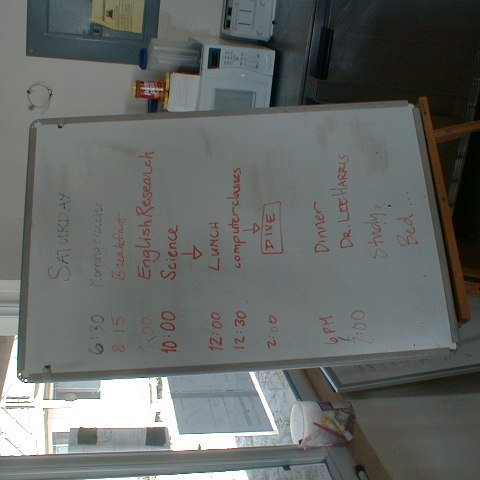 SATURDAY
6:30 Morning exercise
8:15 Breakfast
English Research
10:00 Science
12:00 LUNCH
12:30 computer classes
2:00 DIVE
6PM Dinner
7:00 DR. LEE HARRIS
Study,
Bed...